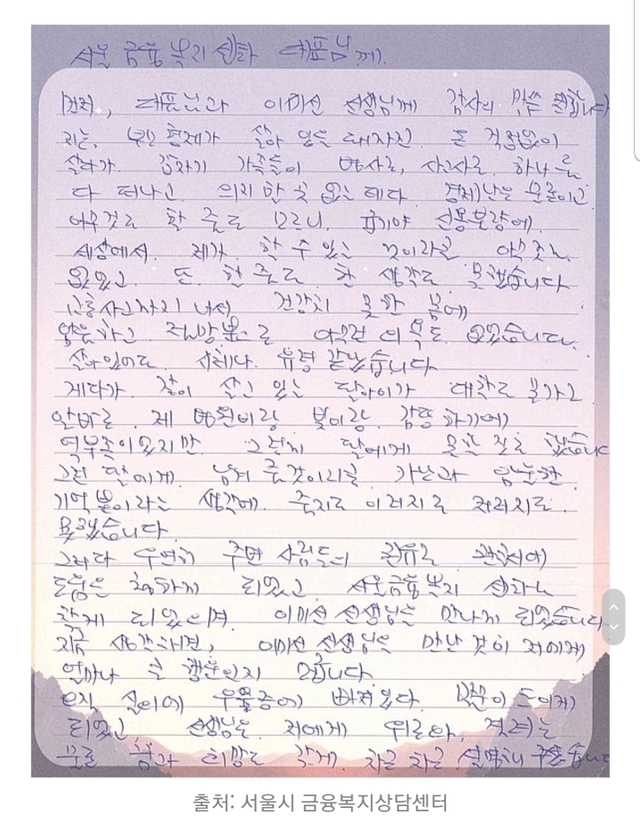 서울 금융복지 센타 대표님께.
먼저, 대표님과 이미선 선생님께 감사의 말씀 전합니다
저는, 부모 형제가 살아 있을 때까진 돈 걱정없이
살다가 갑자기 가족들이 병사로, 사고사로 하나 둘
다 떠나고 의지할 곳 없는데다. 경제난은 물론이고
아무것도 할 줄도 모르니, 급기야 신용불량에.
세상에서. 제가 할 수 있는 것이라곤 아무것도
없었고 또 한 줄도 한 생각도 못했습니다
교통사고까지 나서 건강치 못한 몸에
암울하고 절망뿐으로 아무런 의욕도 없었습니다.
살아있어도 시체나 유령 같았습니다
게다가 같이 살고 있는 딸아이가 대학도 못가고
알바로 제 병원비랑 빚이랑 감당하기에
역부족이었지만 그런 딸에게 못할 짓을 했습니다
그런 딸에게 남겨 줄것이라곤 가난과 암울한
기억 뿐이라는 생각에. 죽지도 이러지도 저러지도
못했습니다.
그러다 우연히 주변 사람들의 권유로 관공서에
도움을 청하게 되었고 서울금융복지 센타를
찾게 되었으며 이미선 선생님을 만나게 되었습니다
지금 생각하면, 이미선 선생님을 만난 것이 저에게
얼마나 큰 행운인지 모릅니다.
오직 실의에 우울증에 빠져있다. 방문이 드이게
되었고 선생님은 저에게 위로와, 격려는
물론 꿈과 희망도 갖게. 차근 차근 설명해 주셨습니다
출처: 서울시 금융복지상담센터